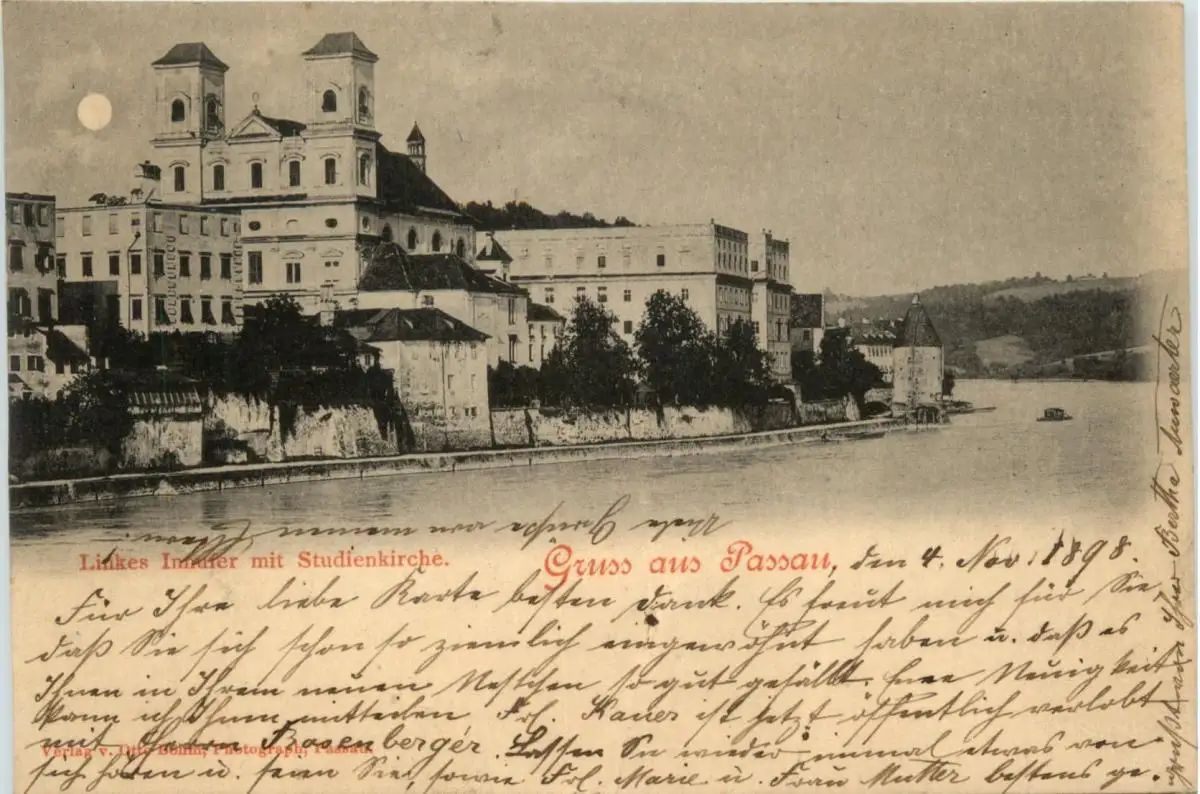 Linkes Innufer mit Studienkirche.
Gruss aus Passau, den 4. Nov. 1898.
Für Ihre liebe Karte besten Dank. Es freut mich für Sie
daß Sie sich schon so ziemlich eingewöhnt haben u. daß es
Ihnen in Ihrem neuen Nestchen so gut gefällt. Eine Neuigkeit
kann ich Ihnen mitteilen Frl. Kauer ist jetzt öffentlich verlobt
mit Herrn Rosenberger. Lassen Sie wieder einmal etwas von
Verlag v. Otto Böhm, Photograph, Passau.
sich hören u. seien Sie, sowie Frl. Marie u. Frau Mutter bestens ge-
grüßt von Ihrer Bertha
von meiner